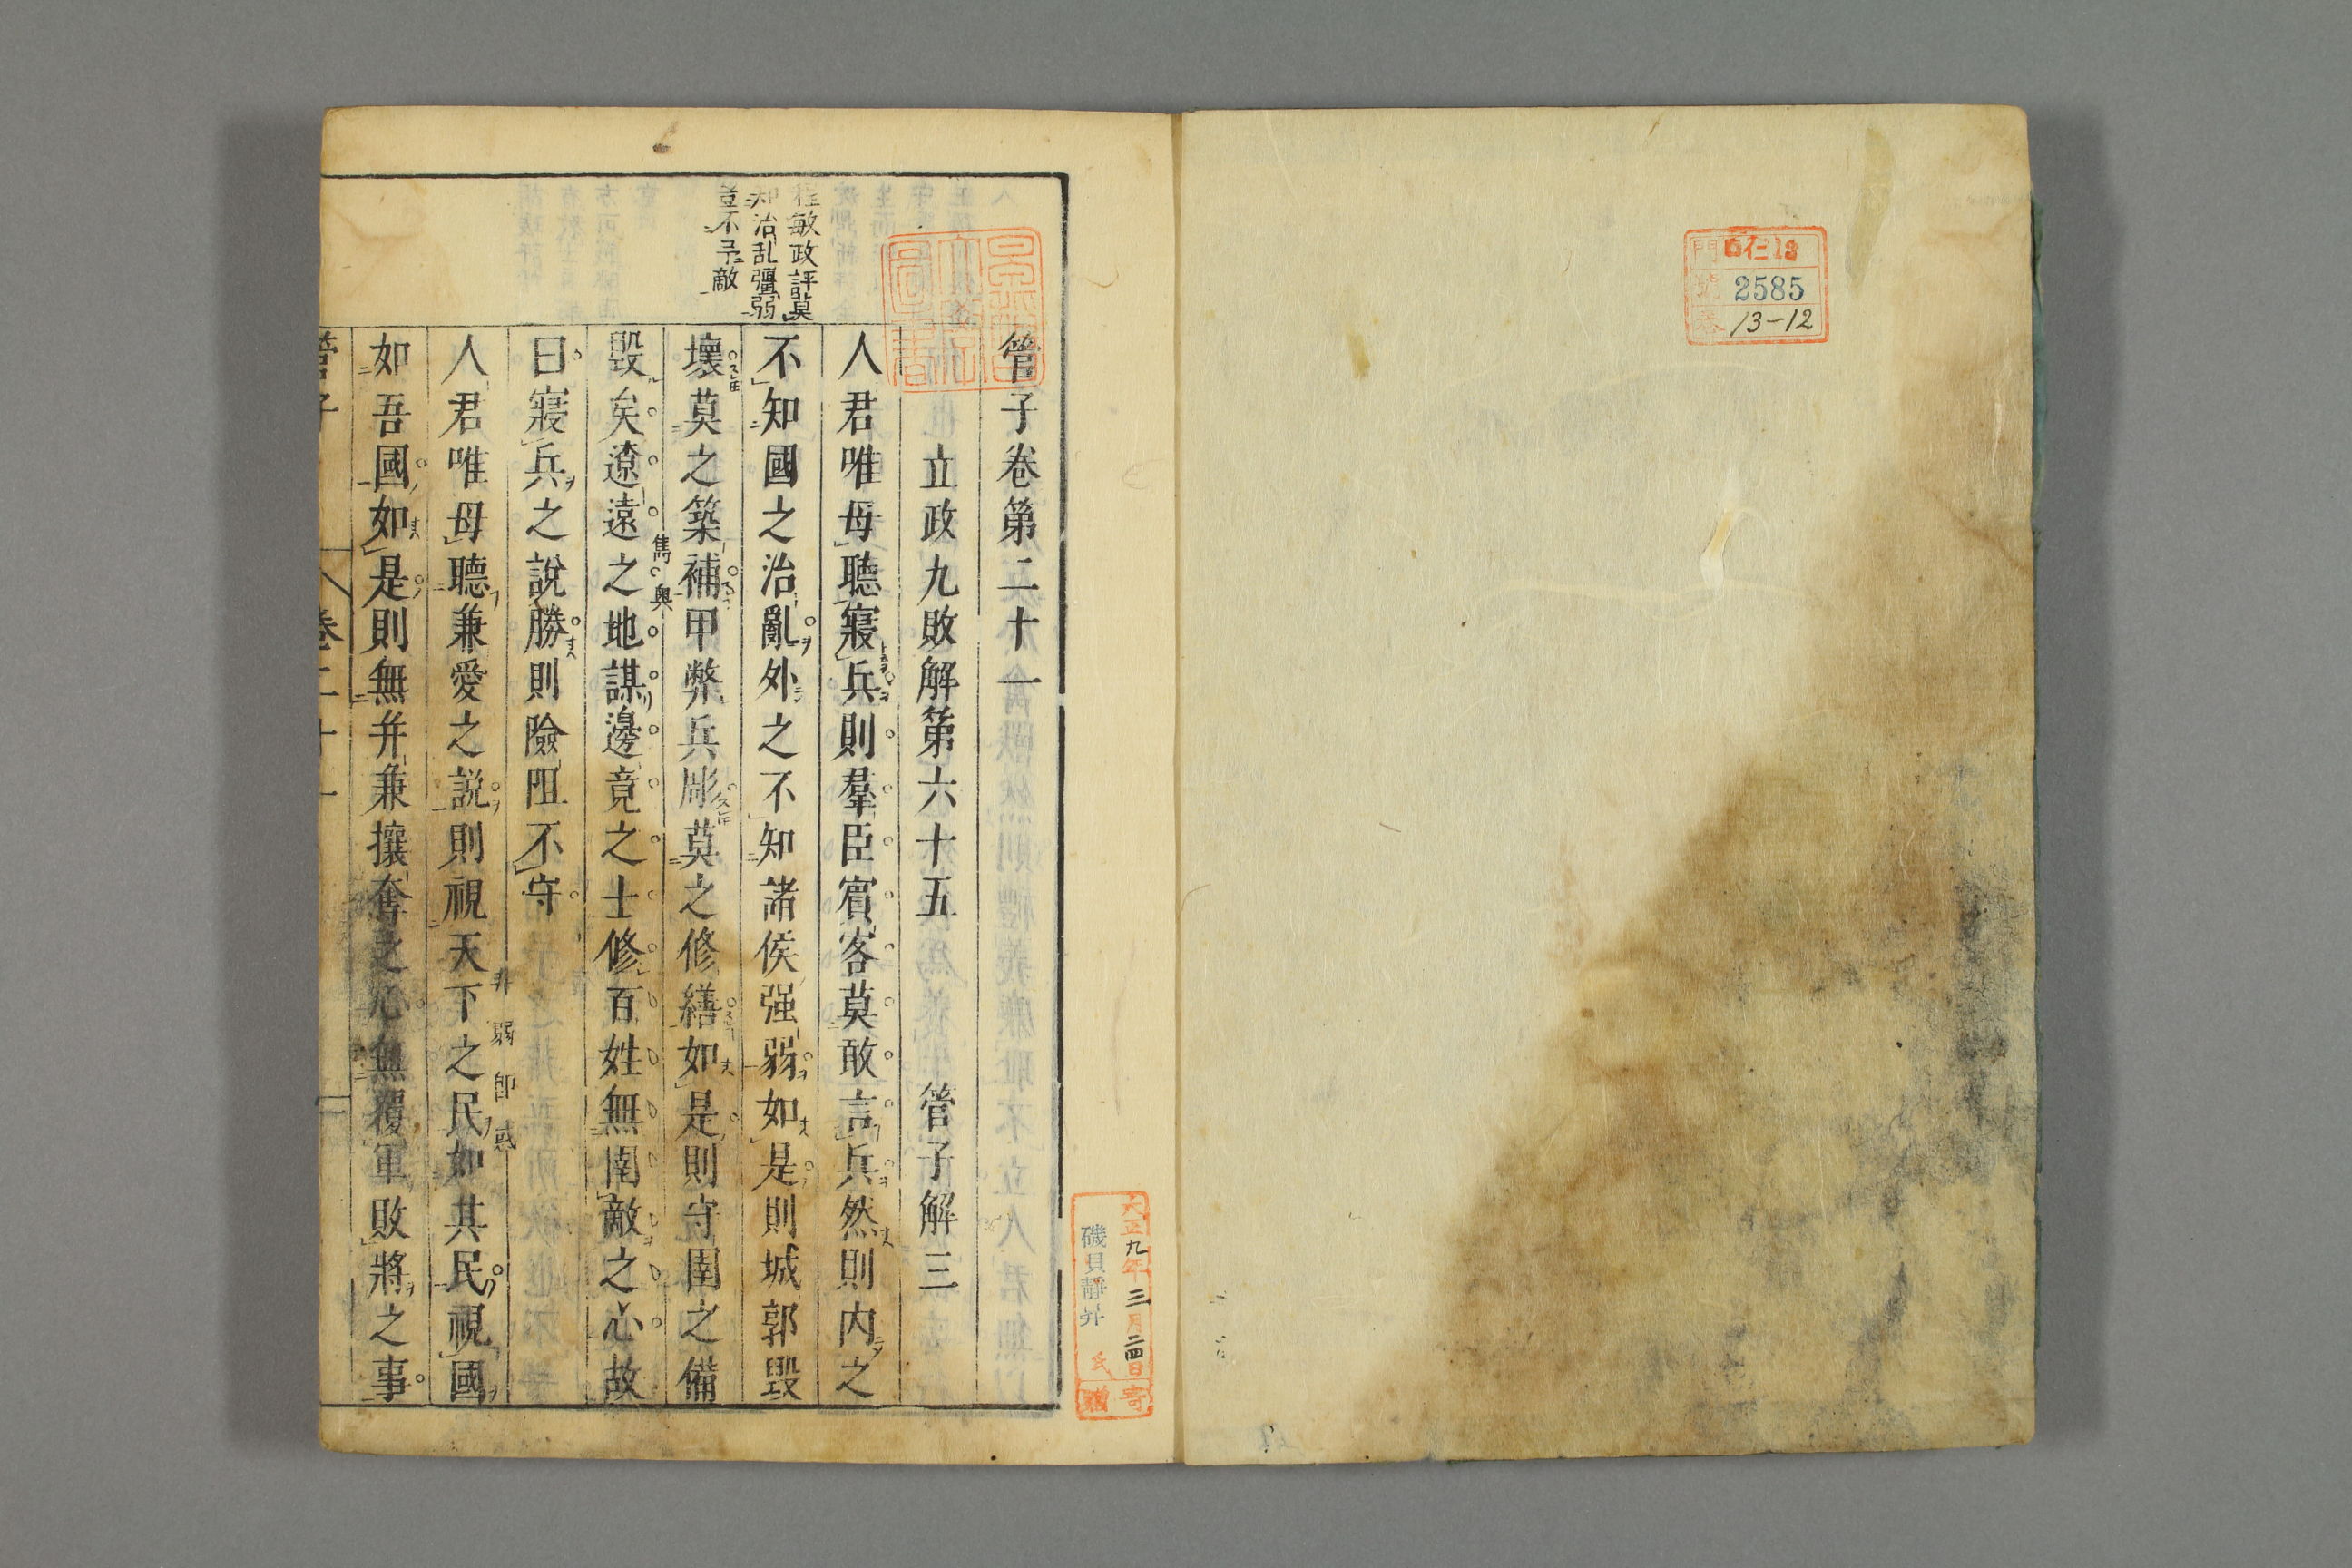 門 ロ仁13
號 2585
巻 13-12
大正九年三月二四日寄
磯貝靜艸氏贈
程敏政評莫
知治乱彊弱
豈不予敵
管子卷第二十一
立政九敗解第六十五 管子解三
人君唯毋聽寢兵則羣臣賓客莫敢言兵然則内之
不知國之治亂外之不知諸侯强弱如是則城郭毀
壞莫之築補甲弊兵彫莫之修繕如是則守圉之備
毀矣遼遠之地謀邊竟之士修百姓無圉敵之心故
雋奧
曰寢兵之說勝則險阻不守
人君唯毋聽兼愛之説則視天下之民如其民視國
非弱即惑
如吾國如是則無并兼攘奪之心無覆軍敗將之事
管子 卷二十一 一